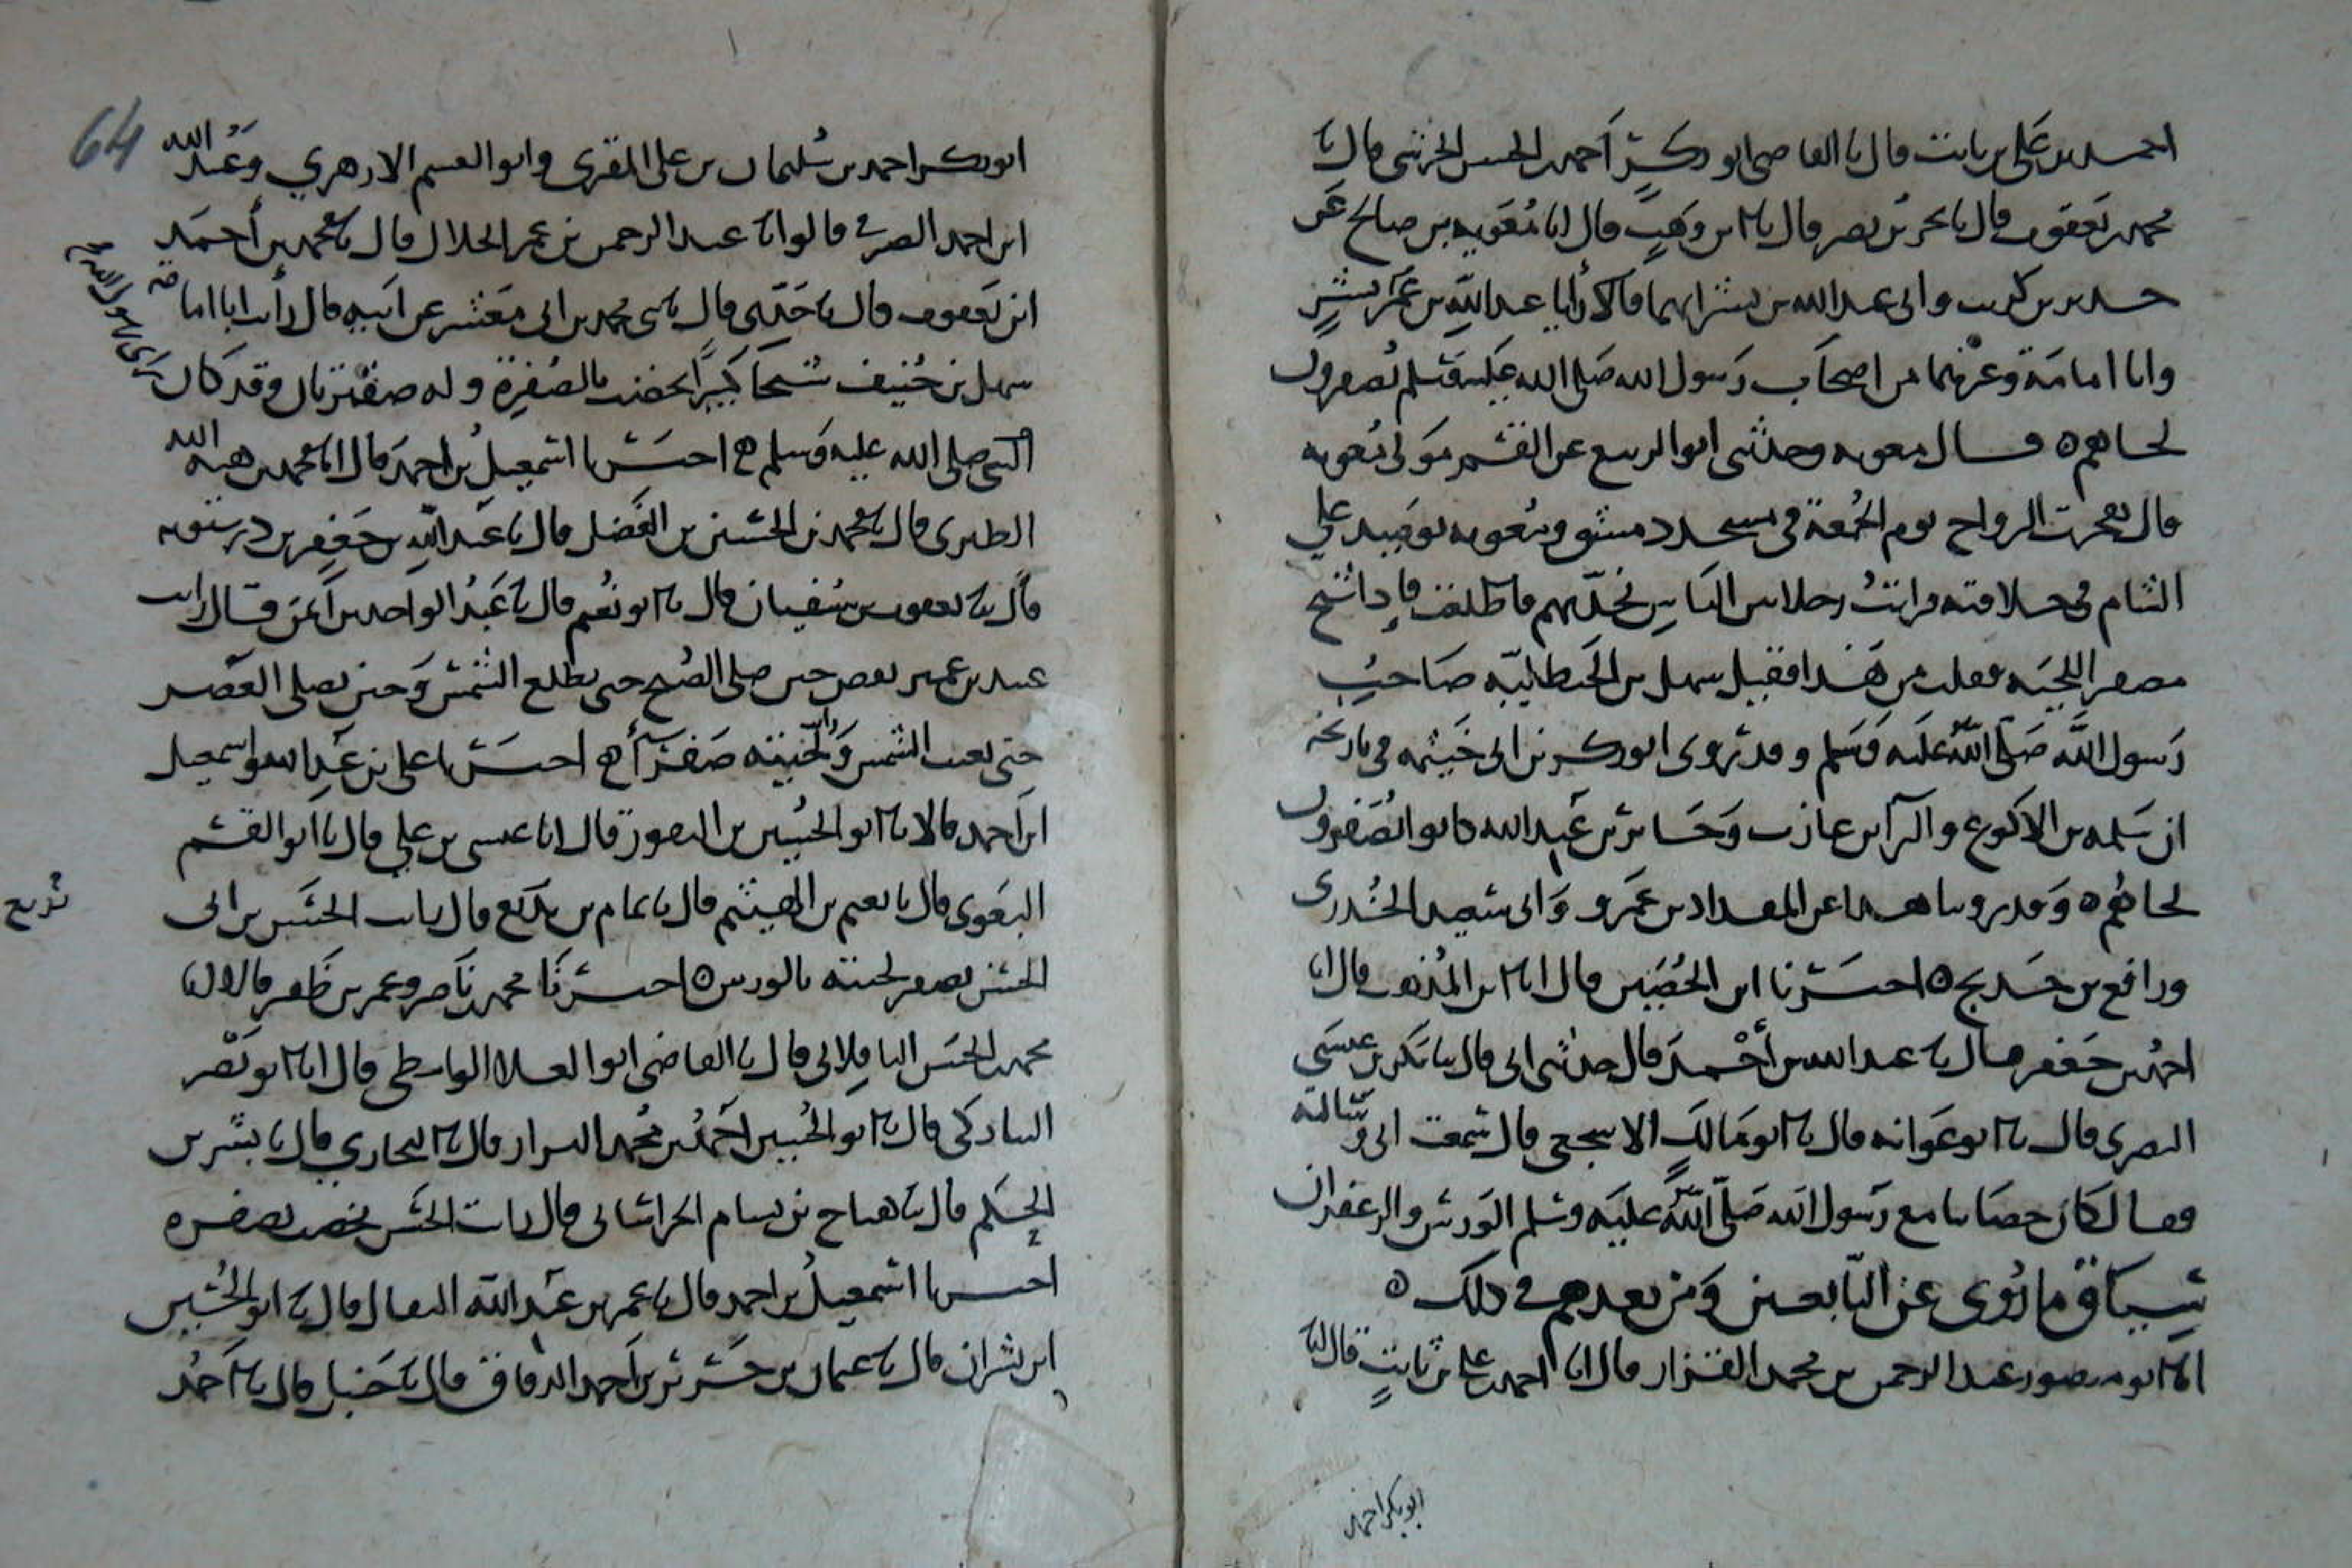 احمد بن علي بن ثابت قال نا القاضي ابو بكر احمد بن الحسن الحرشي قال نا
محمد بن يعقوب قال نا بحر بن نصر قال نا ابن وهب قال انا معوية بن صالح عن
حدير بن كريب وابي عبد الله بن بشر انهما قالا رأينا عبد الله بن بشر
وابا امامة وغيرهما من اصحاب رسول الله صلى الله عليه وسلم يصفرون
لحاهم ه قال معوية وحدثني ابو الربيع عن القسم مولى معوية
قال هجرت الرواح يوم الجمعة في مسجد دمشق ومعوية يوميذ على
الشام في خلافته فرأيت رجلا بين الناس يحدثهم فاطلعت فاذا شيخ
مصفر اللحية فقلت من هذا فقيل سهل بن الحنظلية صاحب
رسول الله صلى الله عليه وسلم وقد روى ابو بكر بن ابي خيثمة في تاريخه
ان سلمة بن الاكوع والبرآ بن عازب وجابر بن عبد الله كانوا يصفرون
لحاهم ه وقد روينا هذا عن المقداد بن عمرو وابي سعيد الخدري
ورافع بن خديج ه اخبرنا ابن الحصين قال انا ابن المذهب قال انا
احمد بن جعفر قال نا عبد الله بن أحمد قال حدثني ابي قال نا بكر بن عيسى
البصري قال نا ابو عوانة قال نا ابو مالك الاشجعي قال سمعت ابي وسالته
فقال كان خضابنا مع رسول الله صلى الله عليه وسلم الورس والزعفران
سياق ما روى عن التابعين ومن بعدهم في ذلك ه
انا ابو منصور عبد الرحمن بن محمد القزاز قال انا احمد بن علي بن ثابت قال انا
ابو بكر احمد
64
ابو بكر احمد بن سليمان بن علي المقرى وابو القسم الازهري وعبيد الله
ابن احمد الصيرفي قالوا انا عبد الرحمن بن عمر الخلال قال نا محمد بن أحمد
ابن يعقوب قال نا جدي قال نا محمد بن ابي معشر عن ابيه قال رأيت ابا امامة
سهل بن حنيف شيخا كبيرا يخضب بالصفرة وله صفيرتان وقد كان
النبي صلى الله عليه وسلم ه اخبرنا اسمعيل بن احمد قال انا محمد بن هبة الله
الطبري قال نا محمد بن الحسين بن الفضل قال نا عبد الله بن جعفر بن درستويه
قال نا يعقوب بن سفيان قال نا ابو نعيم قال نا عبد الواحد بن أيمن قال رأيت
عبيد بن عمير يقص حين صلى الصبح حتى يطلع الشمس وحين يصلي العصر
حتى تغيب الشمس ورأيت لحيته صفرآ ه اخبرنا علي بن عبيد الله واسمعيل
ابن احمد قالا نا ابو الحسين بن النقور قال انا عيسى بن علي قال نا ابو القسم
البغوى قال نا نعيم بن الهيثم قال نا تمام بن بديع قال رأيت الحسن بن ابي
بزيع
الحسن يصفر لحيته بالورس ه اخبرنا محمد بن ناصر وعمر بن ظفر قالا انا
محمد بن الحسن الباقلاني قال نا القاضي ابو العلا الواسطي قال انا ابو نصر
قال نا ابو الحسين احمد بن محمد البزار قال نا البخاري قال نا بشر بن
الحكم قال نا هياج بن بسام الخراساني قال رأيت الحسن يخضب بصفرة
اخبرنا اسمعيل بن احمد قال نا عمر بن عبيد الله البقال قال نا ابو الحسين
ابن بشران قال نا عثمان بن احمد الدقاق قال نا حنبل قال نا احمد